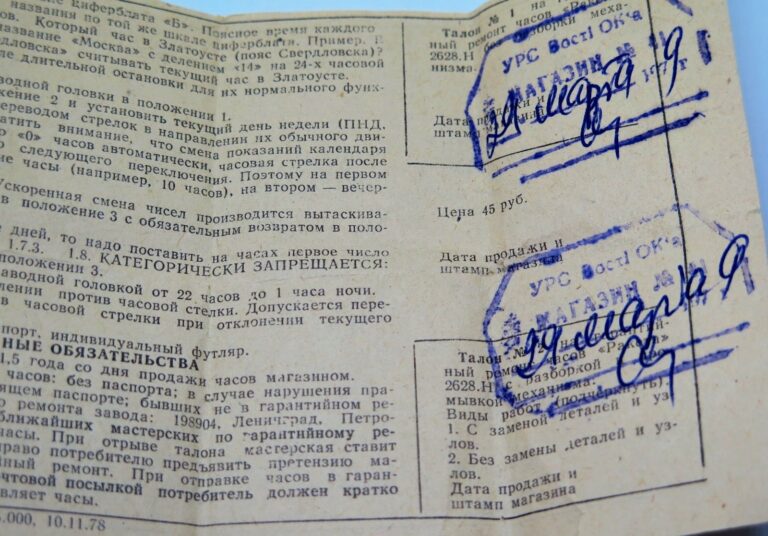 ние циферблата «Б». Поясное время каждого
названия по той же шкале циферблата. Пример.
ов. Который час в Златоусте (пояс Свердловска)?
название «Москва» с делением «14» на 24-х часовой
рдловска» считывать текущий час в Златоусте.
е длительной остановки для их нормального функ-
водной головки в положении 1.
жение 2 и установить текущий день недели (ПНД,
переводом стрелок в направлении их обычного дви-
ратить внимание, что смена показаний календаря
о «0» часов автоматически, часовая стрелка после
о следующего переключения. Поэтому на первом
ие часы (например, 10 часов), на втором — вечер-
Ускоренная смена чисел производится вытаскива-
в положение 3 с обязательным возвратом в поло-
е дней, то надо поставить на часах первое число
1.7.3. 1.8. КАТЕГОРИЧЕСКИ ЗАПРЕЩАЕТСЯ:
положении 3.
заводной головкой от 22 часов до 1 часа ночи.
лении против часовой стелки. Допускается пере-
в часовой стрелки при отклонении текущего
порт, индивидуальный футляр.
НЫЕ ОБЯЗАТЕЛЬСТВА
1,5 года со дня продажи часов магазином.
часов: без паспорта; в случае нарушения пра-
ящем паспорте; бывших не в гарантийном ре-
о ремонта завода: 198904, Ленинград, Петро-
ближайших мастерских по гарантийному ре-
часы. При отрыве талона мастерская ставит
право потребителю предъявить претензию ма-
йный ремонт. При отправке часов в гаран-
чтовой посылкой потребитель должен кратко
вляет часы.
.000, 10.11.78
Талон № 1 на
ный ремонт часов «Ракета»
2628.Н без разборки меха-
низма.
УРС ВостГОК'а
МАГАЗИН №
29 марта 9
Дата продажи и
штамп магазина
Цена 45 руб.
Дата продажи и
штамп магазина
УРС ВостГОК'а
МАГАЗИН №
29 марта 9
Талон № 2 на гарантий-
ный ремонт часов «Ракета»
2628.Н с разборкой
мывкой механизма.
Виды работ (подчеркнуть).
1. С заменой деталей и уз-
лов.
2. Без замены деталей и уз-
лов.
Дата продажи и
штамп магазина